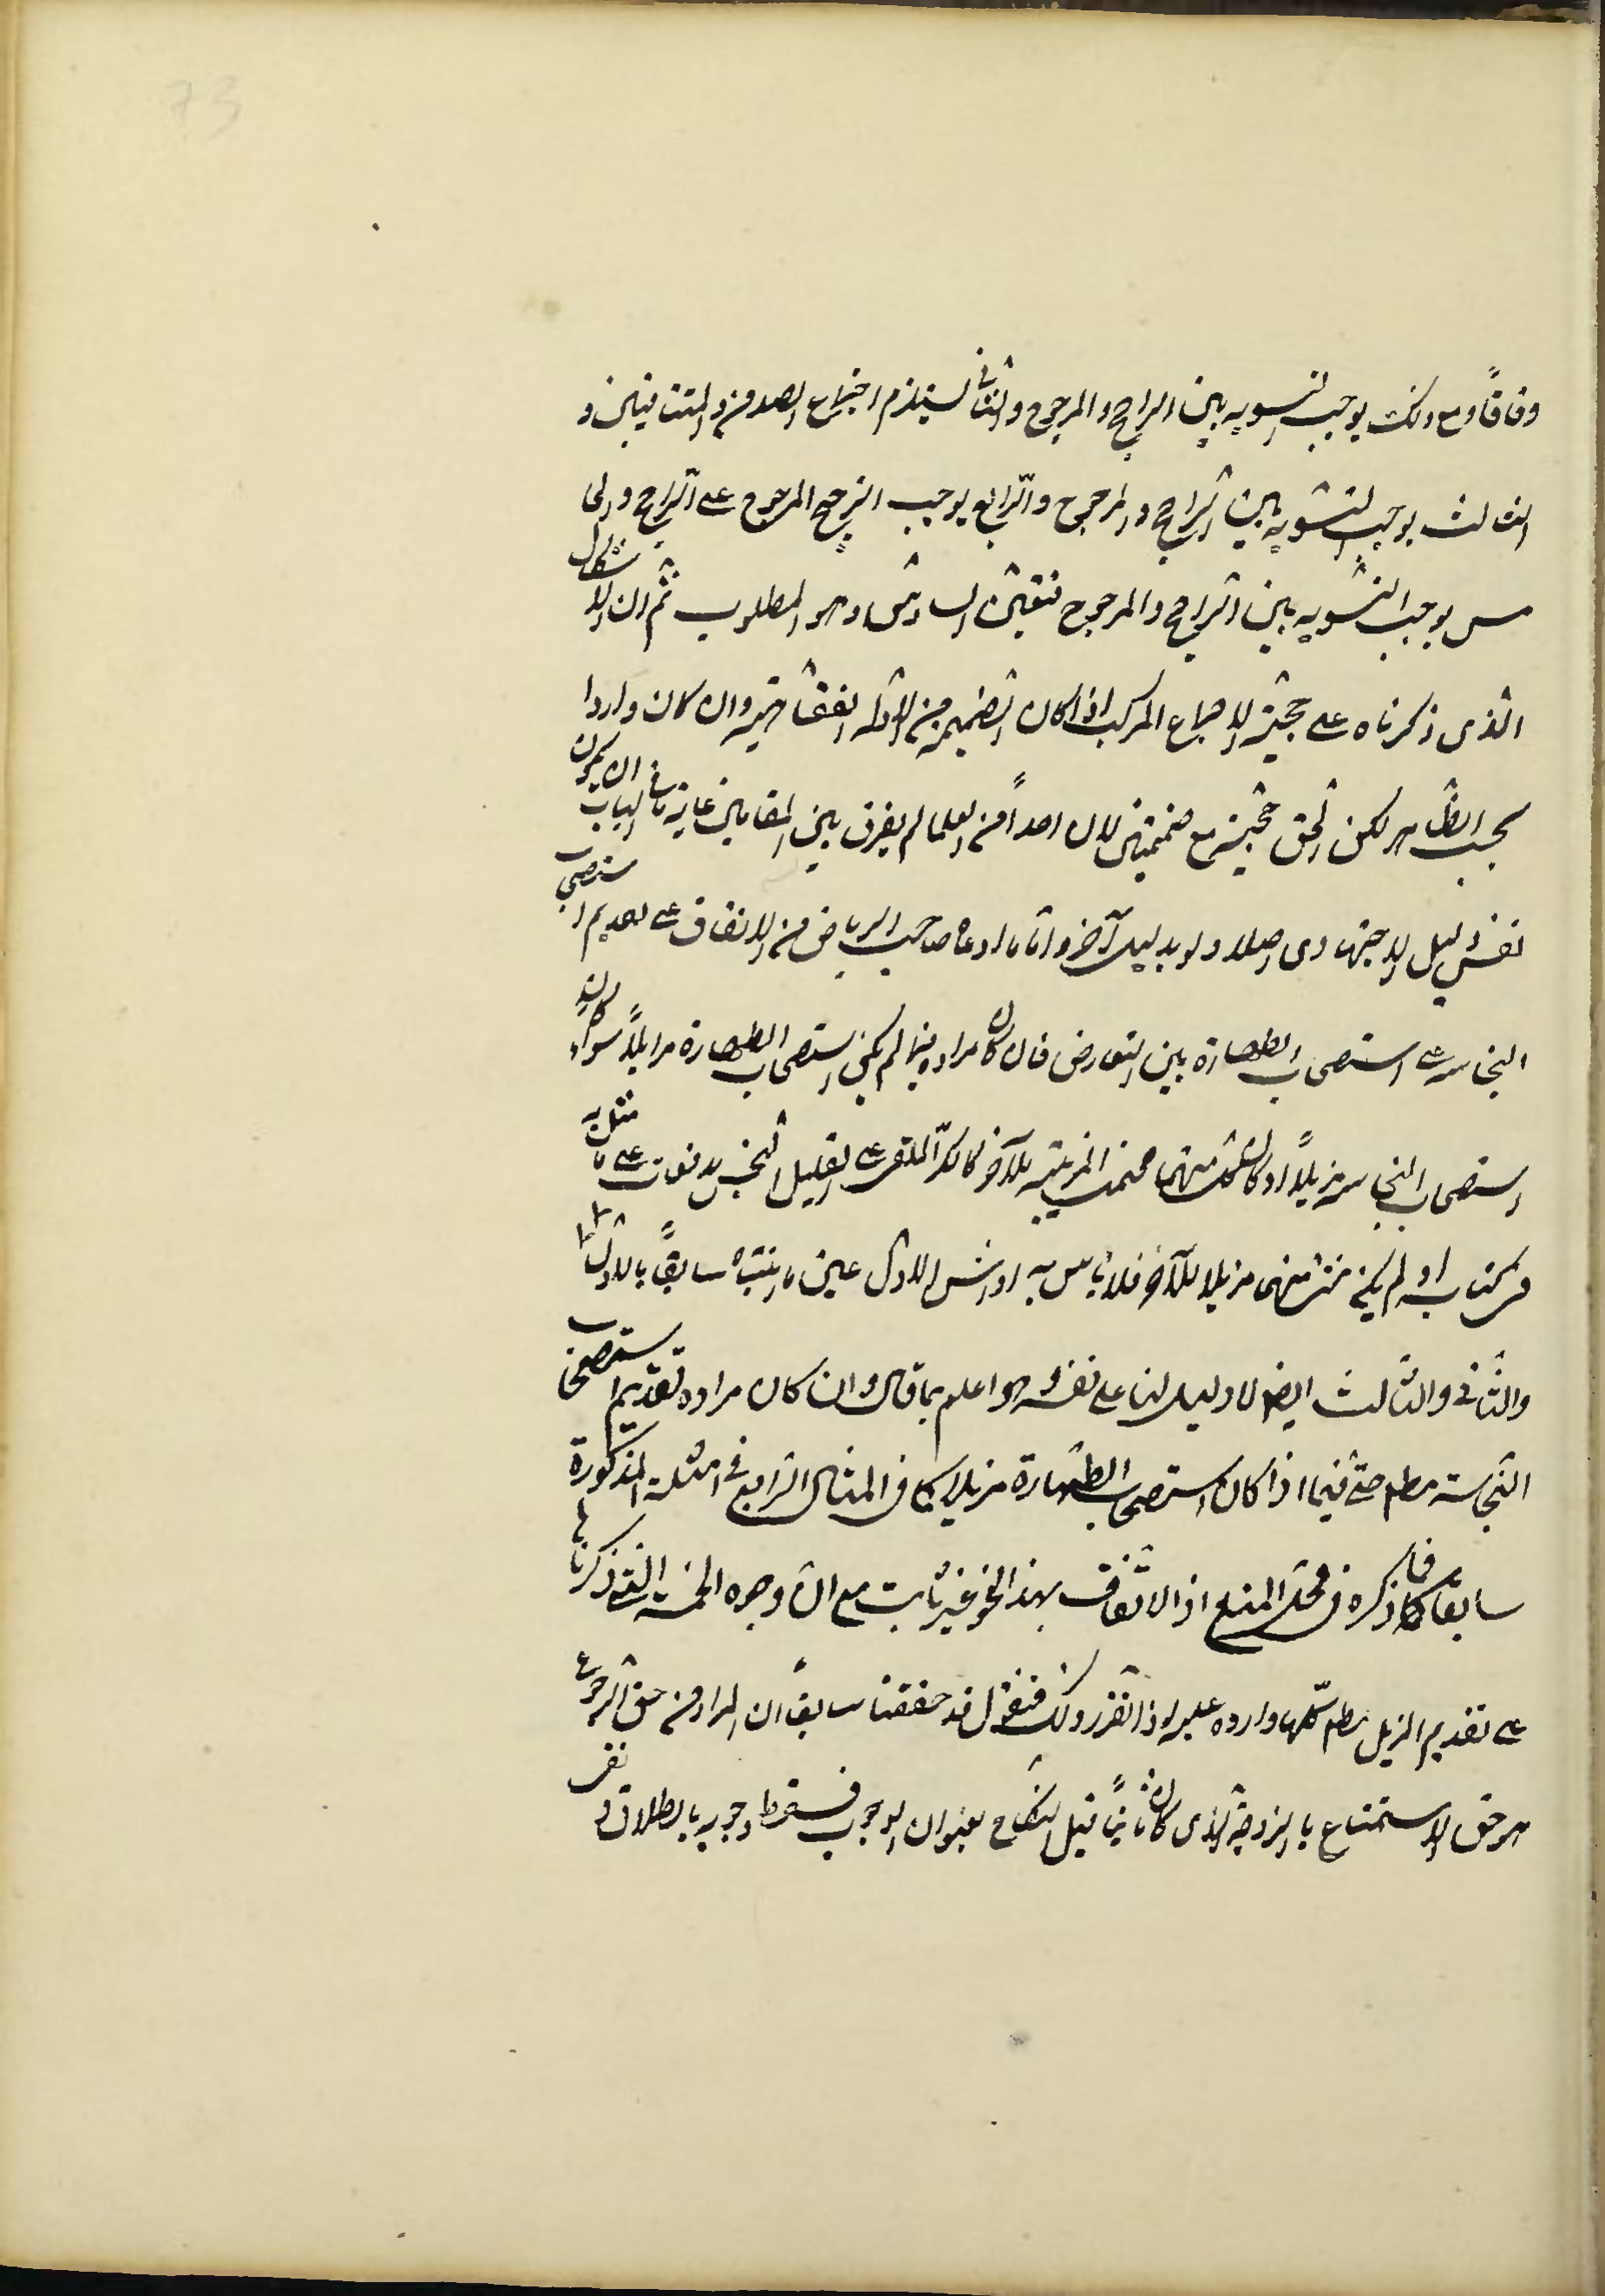 73
وفاقاً ومع ذلك يوجب التسويه بين الراجح والمرجوح والثانى يستلزم اجتماع الصدفين المتنافيين و
الثالث يوجب التسويه بين الراجح والمرجوح والرابع يوجب الترجيح المرجوح على الراجح والخا
مس يوجب التسويه بين الراجح والمرجوح فتعين السادس وهو المطلوب ثم ان الاشكال
الذى ذكرناه على حجية الاجماع المركب اذا كان الضميمه من الادله الفقاهتيه وان كان واردا
بحسب الظاهر لكن الحق حجيته مع ضميمتين لان احداً من العلما لم يفرق بين المقامين غاية ما فى الباب ان يكون
نفس دليل الاجتهادى اصلا ولو بدليل آخر واما ما ادعاه صاحب الرياض من الاتفاق على تقديم استصحاب
النجاسه على استصحاب الطهارة بين التعارض فان كان مراده فيما لم يكن استصحاب الطهارة مزيلاً سواء كان
استصحاب النجاسه مزيلاً او كان الشك منهما محتمل المزيليه للآخر كالكر الملقى على القليل النجس بدفعات على ما مثل به
فى كتابه او لم يكن شئ منهما مزيلا للآخر فلا باس به اذ الاول عين ما اثبتناه سابقاً بالادله
والثانى والثالث ايضا لا دليل لنا على نفيه وهو اعلم بما قال وان كان مراده تقديم استصحاب
النجاسته مطم حتى فيما اذا كان استصحاب الطهارة مزيلا كما فى المثال الرابع فى امثلة المذكورة
سابقا فما ذكره فى محل المنع اذ الاتفاق بهذا النحو غير ثابت مع ان وجوه الخمسة التى ذكرناها
على تقديم المزيل مطم كلها وارده عليه اذا تقرر ذلك فنقول قد حققنا سابقاً ان المراد من حق الرجوع
هو حق الاستمتاع بالزوجة الذى كان ثابتاً قبل النكاح بعنوان الوجوب فسقط وجوبه بالطلاق و